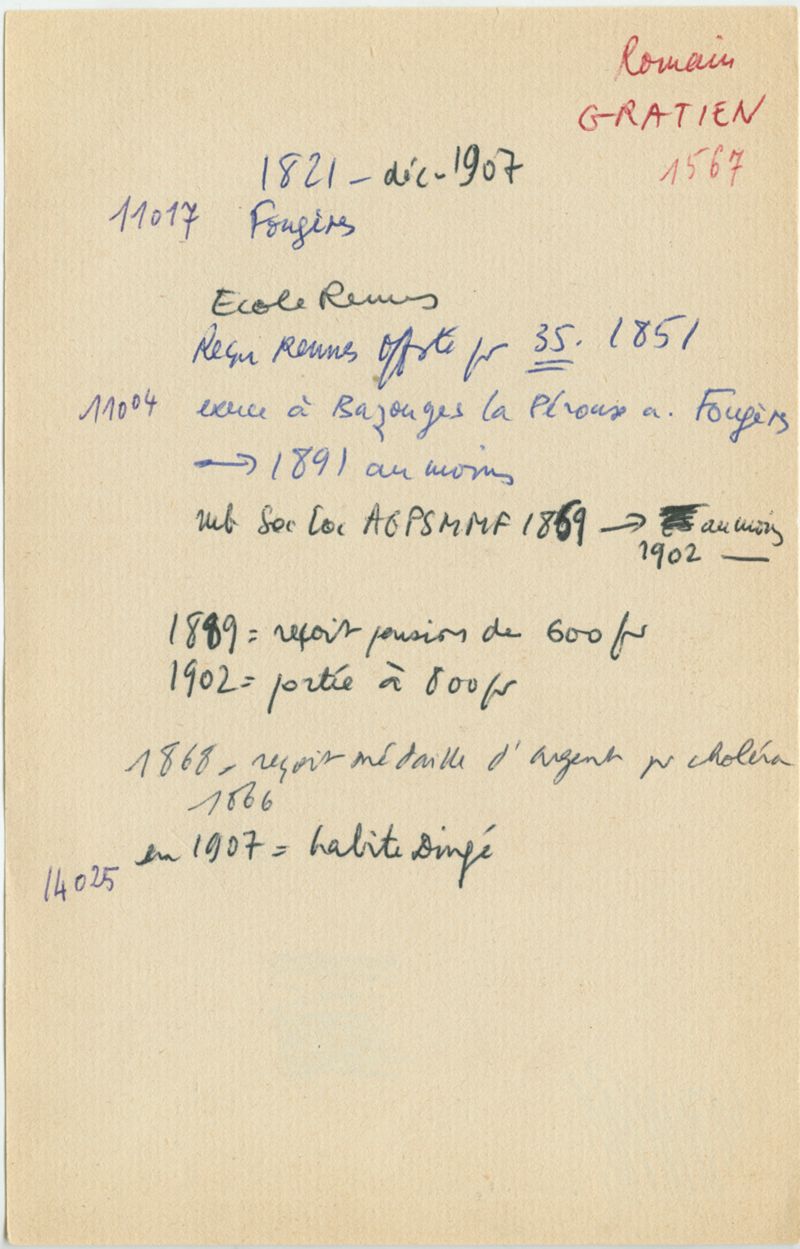 Romain
GRATIEN
1567
1821 - déc - 1907
11017 Fougères
Ecole Rennes
Reçu Rennes Offste pr 35. 1851
11004 exerce à Bazouges la Pérouse a. Fougères
→ 1891 au moins
mb Soc Loc AGPSMMF 1869 → au moins
1902 —
1889 = reçoit pension de 600 fr
1902 = portée à 800 fr
1868 - reçoit médaille d'argent pr choléra
1866
en 1907 = habite Dingé
14025